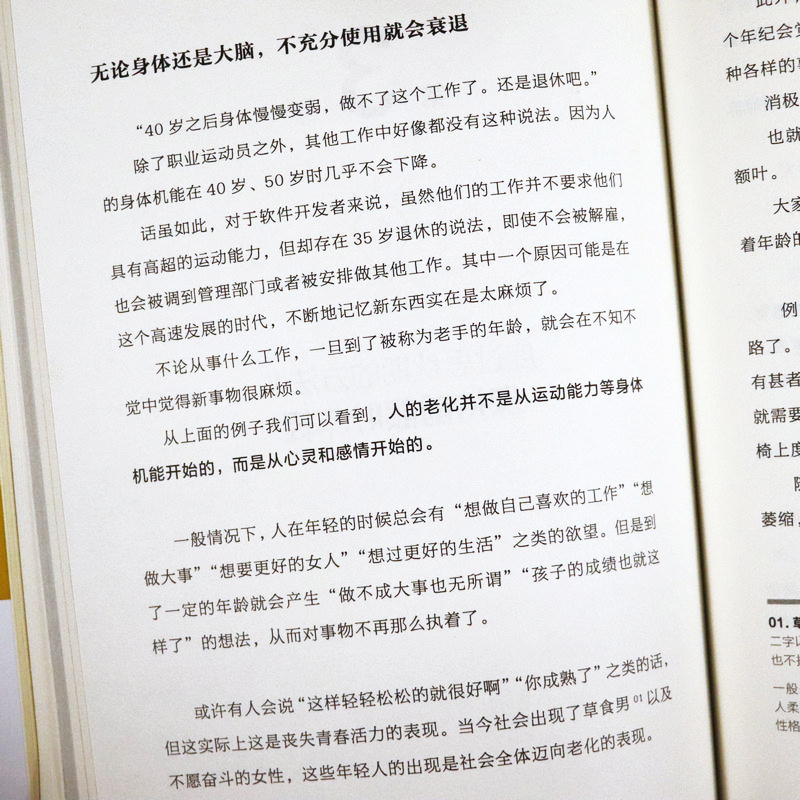 无论身体还是大脑，不充分使用就会衰退
“40 岁之后身体慢慢变弱，做不了这个工作了。还是退休吧。”
除了职业运动员之外，其他工作中好像都没有这种说法。因为人
的身体机能在 40 岁、50 岁时几乎不会下降。
话虽如此，对于软件开发者来说，虽然他们的工作并不要求他们
具有高超的运动能力，但却存在 35 岁退休的说法，即使不会被解雇，
也会被调到管理部门或者被安排做其他工作。其中一个原因可能是在
这个高速发展的时代，不断地记忆新东西实在是太麻烦了。
不论从事什么工作，一旦到了被称为老手的年龄，就会在不知不
觉中觉得新事物很麻烦。
从上面的例子我们可以看到，人的老化并不是从运动能力等身体
机能开始的，而是从心灵和感情开始的。
一般情况下，人在年轻的时候总会有“想做自己喜欢的工作”“想
做大事”“想要更好的女人”“想过更好的生活”之类的欲望。但是到
了一定的年龄就会产生“做不成大事也无所谓”“孩子的成绩也就这
样了”的想法，从而对事物不再那么执着了。
或许有人会说“这样轻轻松松的就很好啊”“你成熟了”之类的话，
但这实际上这是丧失青春活力的表现。当今社会出现了草食男01以及
不愿奋斗的女性，这些年轻人的出现是社会全体迈向老化的表现。
个年纪会
种各样的
消极
也就
额叶。
大家
着年龄的
例
路了。
有甚者
就需要
椅上度
萎缩，
01. 草
二字以
也不
一般
人柔
性格